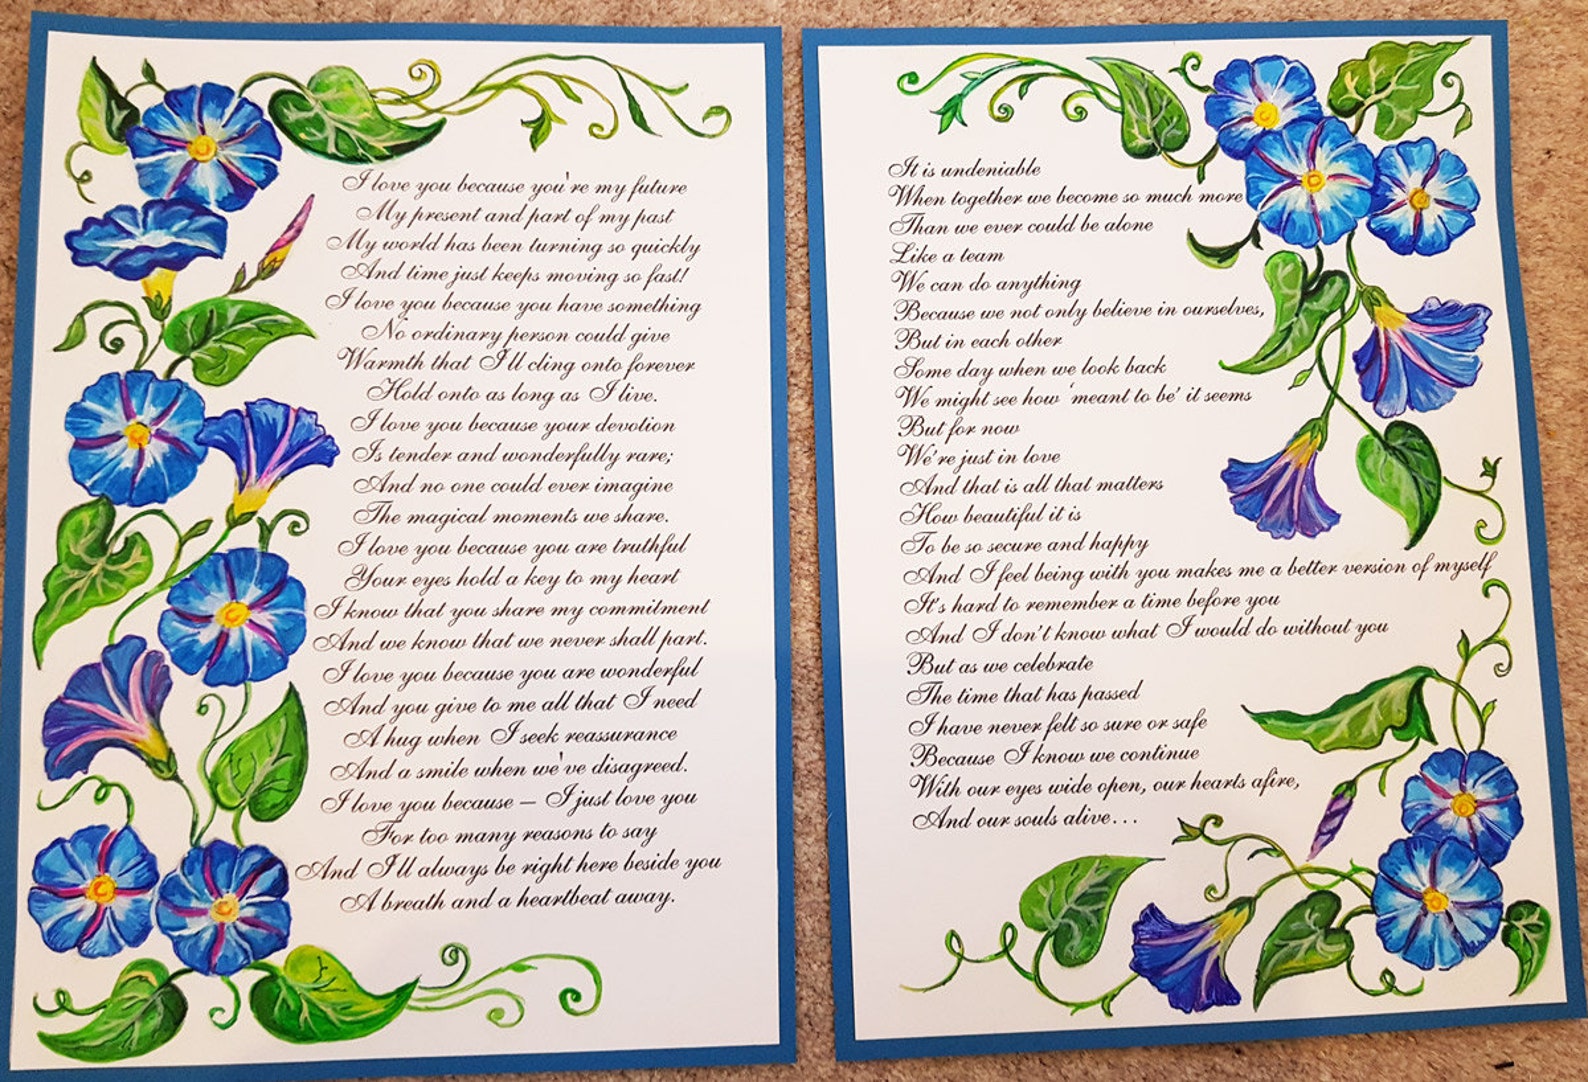 I love you because you're my future
My present and part of my past
My world has been turning so quickly
And time just keeps moving so fast!
I love you because you have something
No ordinary person could give
Warmth that I'll cling onto forever
Hold onto as long as I live.
I love you because your devotion
Is tender and wonderfully rare;
And no one could ever imagine
The magical moments we share.
I love you because you are truthful
Your eyes hold a key to my heart
I know that you share my commitment
And we know that we never shall part.
I love you because you are wonderful
And you give to me all that I need
A hug when I seek reassurance
And a smile when we've disagreed.
I love you because – I just love you
For too many reasons to say
And I'll always be right here beside you
A breath and a heartbeat away.
It is undeniable
When together we become so much more
Than we ever could be alone
Like a team
We can do anything
Because we not only believe in ourselves,
But in each other
Some day when we look back
We might see how 'meant to be' it seems
But for now
We're just in love
And that is all that matters
How beautiful it is
To be so secure and happy
And I feel being with you makes me a better version of myself
It's hard to remember a time before you
And I don't know what I would do without you
But as we celebrate
The time that has passed
I have never felt so sure or safe
Because I know we continue
With our eyes wide open, our hearts afire,
And our souls alive…